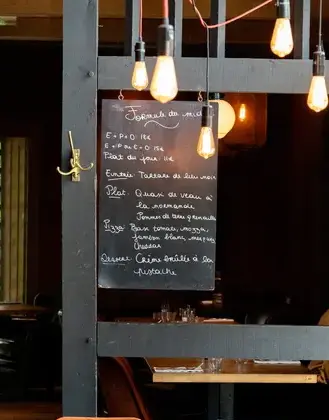 Formule du midi
E + P + D : 18€
Plat du jour : 11€
Entrée : Tartare de lieu noir
Plat : Quasi de veau à
la normande
Pommes de terre grenailles
Pizza : Base tomate, mozza,
jambon blanc,
Cheddar
Dessert : Crème brûlée à la
pistache